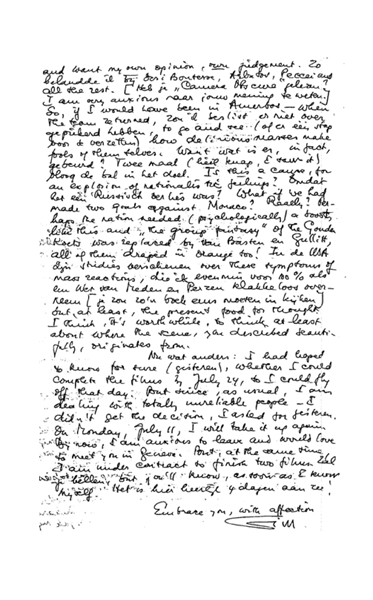 and want my own opinion, own judgement. Zo
belandde ik by Desi Bouterse, Arbatov, Peccei and
all the rest. [Heb je "Camera Obscura" gelezen?
I am very anxious naar jouw mening te weten.]
So, if I would have been in Amersfoort — when
the team returned, zou ik beslist er niet over
gepiekerd hebben, to go and see (of er een stap
voor te verzetten) how delirious masses make
fools of themselves. Want wat is er, in fact,
gebeurd? Twee maal (heel knap, I saw it)
vloog de bal in het doel. Is this a cause, for
an explosion of nationalistic feelings? Omdat
het een Russisch verlies was? What if we had
made two goals against Monaco? Really? Per-
haps, the nation needed (psychologically) a boost,
like this and "the group fantasy" of the Gouden
Koets was replaced by Van Basten en Gullit,
all of them draped in orange too! In de USA
zijn studies verschenen over these symptoms of
mass reactions, die ik evenmin voor 100% als
een Wet van Meden en Perzen klakkeloos over-
neem [je zou zo'n boek eens moeten inkijken]
but, at least, they present food for thought.
I think, it's worthwhile, to think at least
about where the scene, you described beauti-
fully, originates from.
Nu wat anders: I had hoped
to know for sure (gisteren), whether I could
complete the films by July 24, so I could fly
off that day. But since, as usual, I am
dealing with totally unreliable people — I
didn't get the decision, I asked for gisteren.
On Monday July 11, I will take it up again.
By now, I am anxious to leave and would love
to meet you in Geneva. But, at the same time,
I am under contract to finish two films. Zal
je bellen, but you'll know, as soon as I know
myself. Het is hier heerlijk 4 dagen aan zee!
Embrace you, with affection